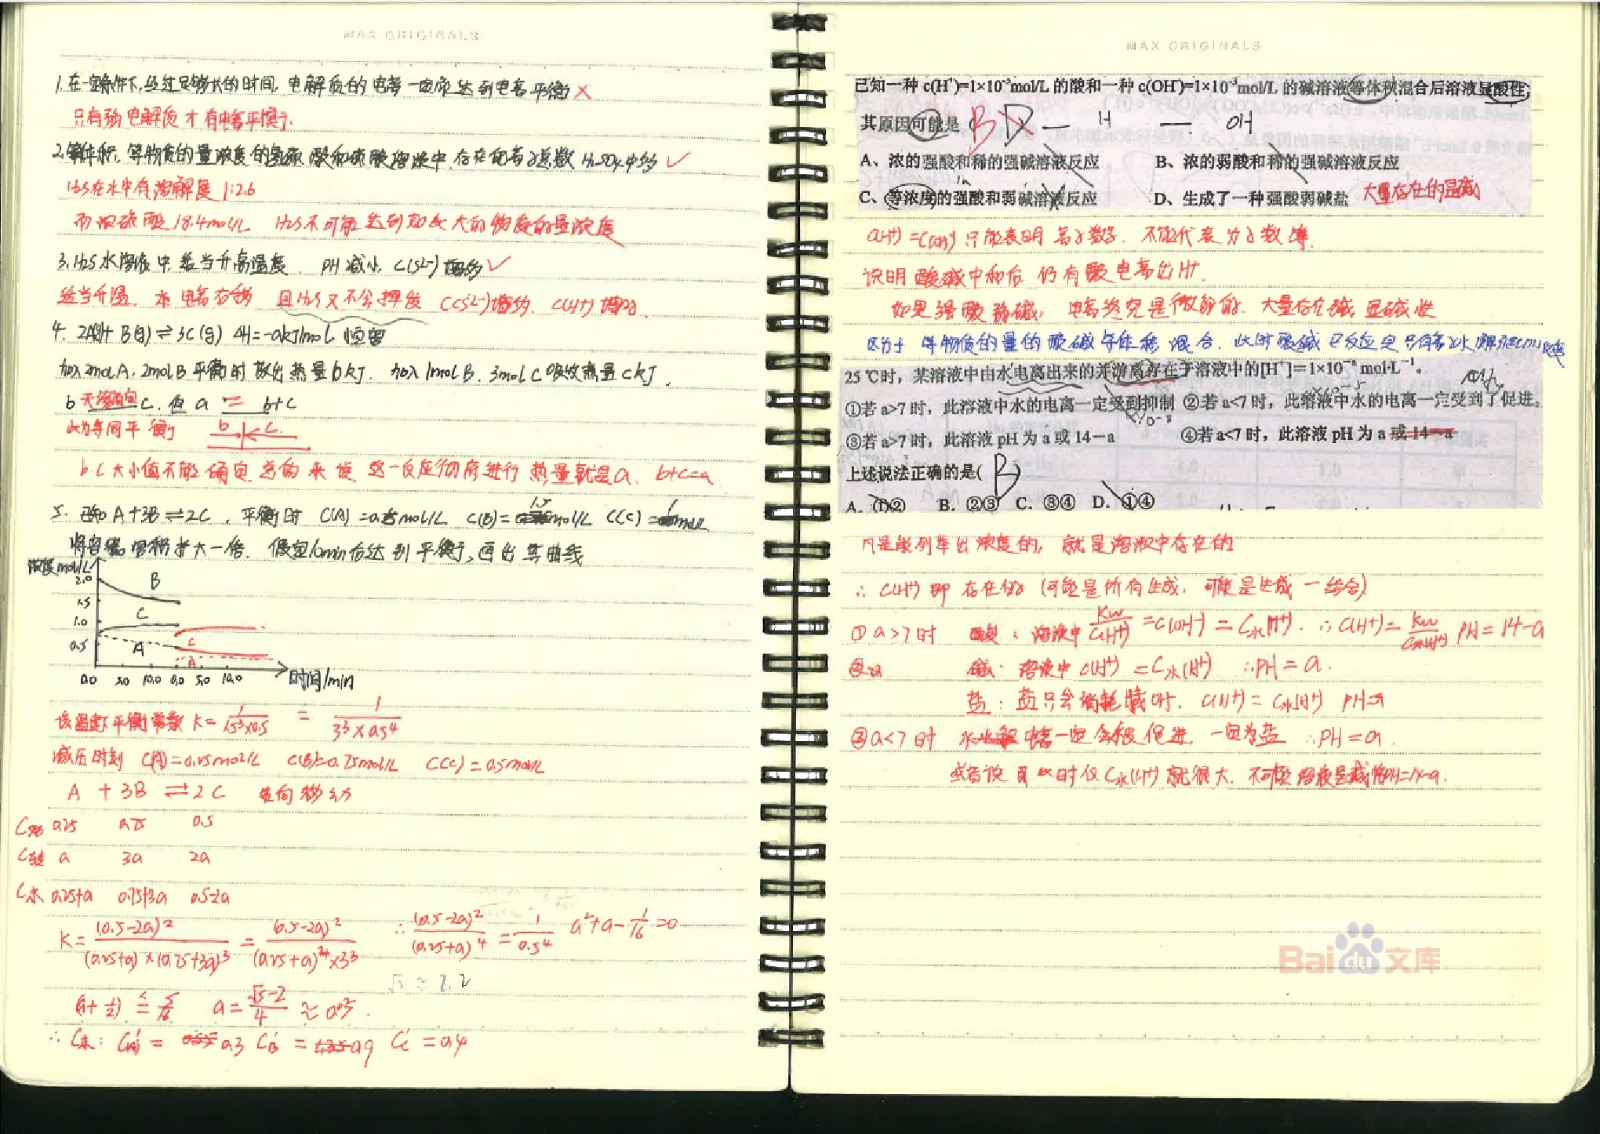 MAX ORIGINALS
1.在一定条件下,经过足够长的时间,电解质的电离一定会达到电离平衡×
只有弱电解质才有电离平衡.
2.等体积,等物质的量浓度的氢硫酸和硫酸溶液中,存在的离子总数 H₂SO₄中多 ✓
H₂S在水中有溶解度 1:2.6
而浓硫酸 18.4mol/L H₂S不可能达到如此大的物质的量浓度
3.H₂S水溶液中,适当升高温度, PH减小, C(S²⁻)增多 ✓
适当升温, 电离右移 且H₂S又不会挥发 C(S²⁻)增多, C(H⁺)增多.
4. 2A(g)+B(g)⇌3C(g) ΔH=-akJ/mol 恒容
加入2molA,2molB平衡时放出热量bkJ. 加入1molB、3molC吸收热量ckJ.
b 无法确定 c, 但 a = b+c
此为等同平衡 b c
b、c大小值不能确定 这一反应彻底进行 热量就是a. b+c=a
5. 已知 A+3B⇌2C, 平衡时 C(A)=0.5mol/L C(B)=1.5mol/L C(C)=1mol/L
将容器容积扩大一倍. 假定10min后达到平衡,画出其曲线
浓度mol/L
2.0 B
1.5 C
1.0 C
0.5 A A
0.0 5.0 10.0 0.0 5.0 10.0 时间/min
该温度下平衡常数 K=1/(1.5³×0.5) = 1/(3³×0.5⁴)
减压时刻 C(A)=0.25mol/L C(B)=0.75mol/L C(C)=0.5mol/L
A + 3B ⇌ 2C 逆向移动
C始 0.25 0.75 0.5
C转 a 3a 2a
C末 0.25+a 0.75+3a 0.5-2a
K=(0.5-2a)²/((0.25+a)×(0.75+3a)³)=(0.5-2a)²/((0.25+a)⁴×3³) ∴(0.5-2a)²/(0.25+a)⁴=1/0.5⁴ a²+a-1/16=0
√5≈2.2
(a+½)²=5/16 a=(√5-2)/4≈0.05.
∴C末: C'A=0.3 C'B=0.9 C'C=0.4
MAX ORIGINALS
已知一种 c(H⁺)=1×10⁻³mol/L 的酸和一种 c(OH⁻)=1×10⁻³mol/L 的碱溶液等体积混合后溶液显酸性,
其原因可能是 B D — H — OH
A、浓的强酸和稀的强碱溶液反应 B、浓的弱酸和稀的强碱溶液反应
C、等浓度的强酸和弱碱溶液反应 D、生成了一种强酸弱碱盐 大量存在的是碱
c(H⁺)=c(OH⁻)只能表明离子数, 不能代表分子数
说明酸碱中和后 仍有酸电离出H⁺.
如果强酸弱碱, 电离终究是微弱的. 大量存在碱 显碱性
等物质的量的酸碱等体积混合, 此时酸碱已反应完
25 ℃时,某溶液中由水电离出来的并游离存在于溶液中的[H⁺]=1×10⁻ᵃ mol·L⁻¹。
①若 a>7 时,此溶液中水的电离一定受到抑制 ②若 a<7 时,此溶液中水的电离一定受到了促进。
③若 a>7 时,此溶液 pH 为 a 或 14-a ④若 a<7 时,此溶液 pH 为 a 或 14-a
上述说法正确的是( B )
A. ①② B. ②③ C. ③④ D. ①④
凡是能列举出浓度的, 就是溶液中存在的
∴ C(H⁺)即存在的 (可能是所有生成, 可能是生成-结合)
① a>7时 酸: 溶液中 Kw/C(H⁺)=C(OH⁻)=C水(H⁺). ∴C(H⁺)=Kw/C水(H⁺) PH=14-a
碱: 溶液中C(H⁺)=C水(H⁺) ∴PH=a.
盐: 盐只会消耗碱时, C(H⁺)=C水(H⁺) PH=a
② a<7时 水电离一定会被促进, 一定为盐 ∴PH=a.
或者说 且此时仅C水(H⁺)就很大, 不可能溶液是碱的PH=14-a.
Baidu文库